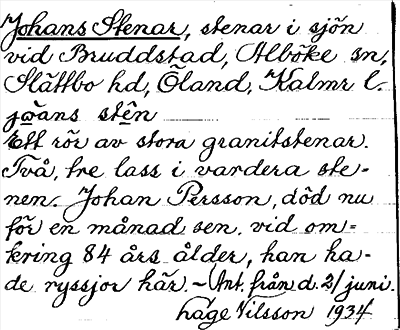 Johans Stenar, stenar i sjön
vid Bruddstad, Alböke sn,
Slättbo hd, Öland, Kalmr l.
jωans stên
Ett rör av stora granitstenar.
Två, tre lass i vardera ste-
nen. Johan Persson, död nu
för en månad sen vid om-
kring 84 års ålder, han ha-
de ryssjor här. – Ant. från d. 2/ juni.
håge Nilsson 1934